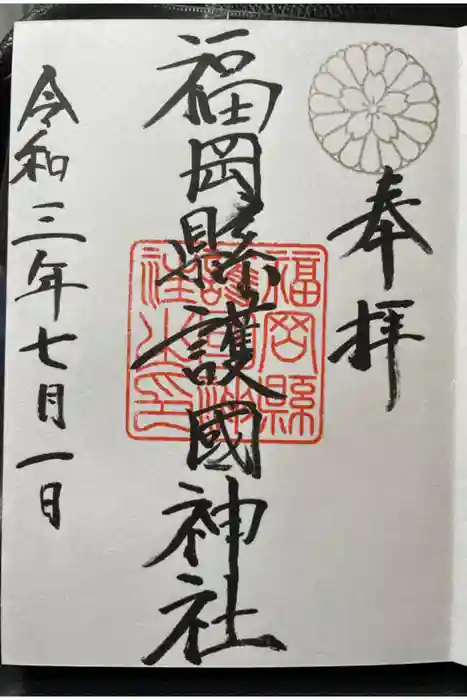 奉拝
福岡縣護國神社
令和三年七月一日
福岡縣